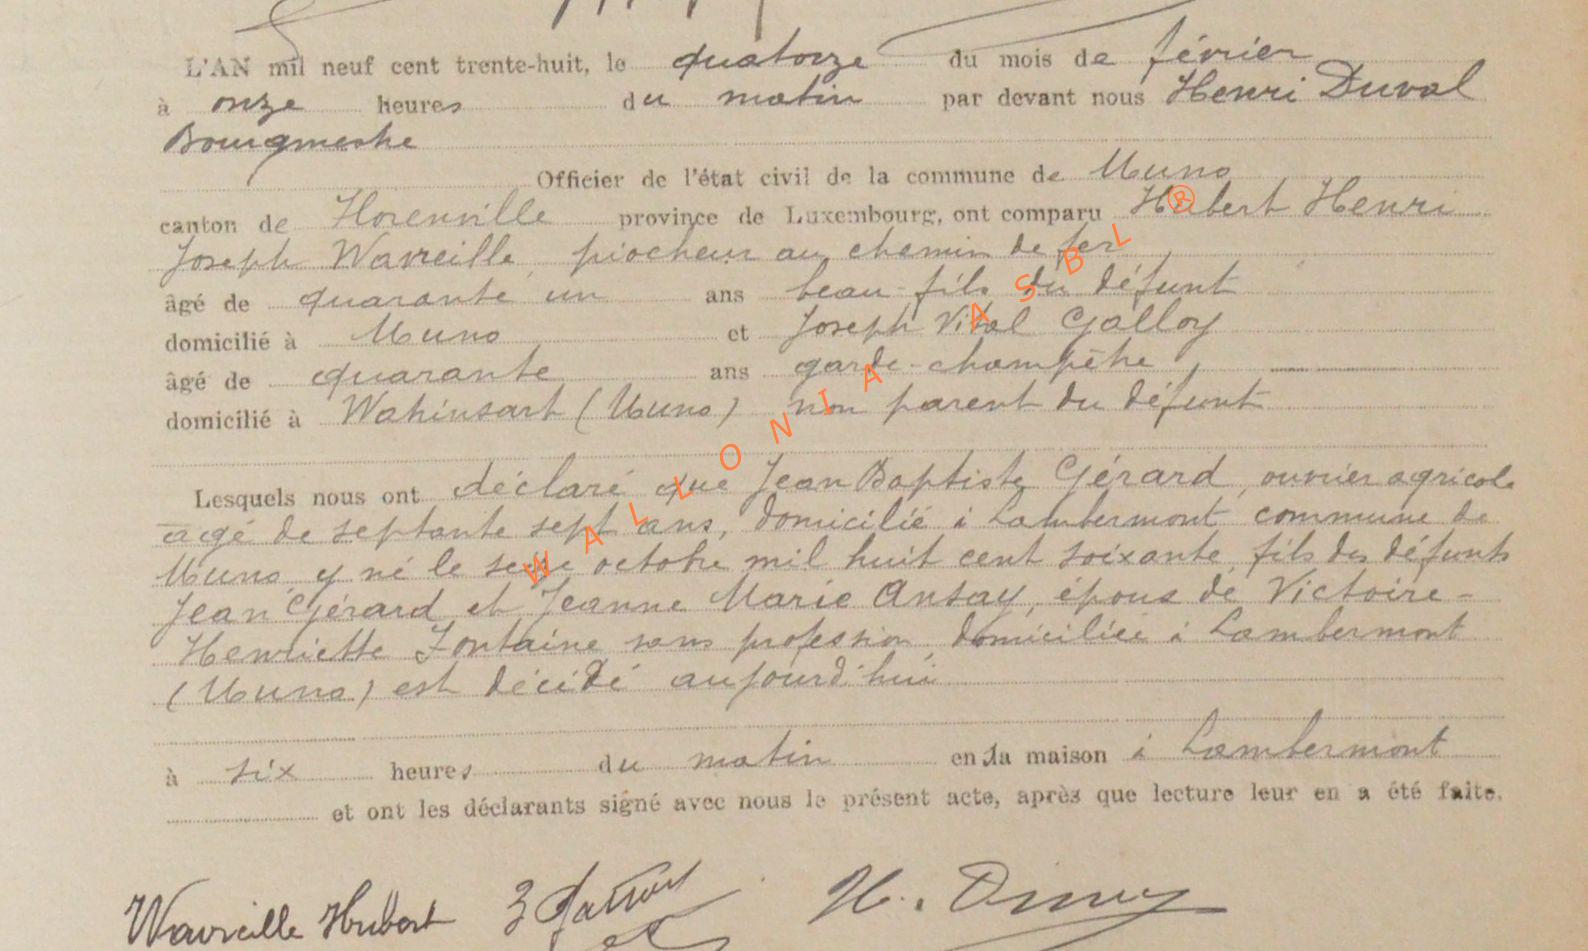 L'AN mil neuf cent trente-huit, le quatorze du mois de février
à onze heures du matin par devant nous Henri Duval
Bourgmestre
Officier de l'état civil de la commune de Muno
canton de Florenville province de Luxembourg, ont comparu Hubert Henri
Joseph Wavreille, piocheur au chemin de fer
âgé de quarante un ans beau-fils du défunt
domicilié à Muno et Joseph Vital Galloy
âgé de quarante ans garde-champêtre
domicilié à Wahinsart (Muno) non parent du défunt
Lesquels nous ont déclaré que Jean Baptiste Gérard, ouvrier agricole
âgé de septante sept ans, domicilié à Lambermont commune de
Muno y né le seize octobre mil huit cent soixante, fils des défunts
Jean Gérard et Jeanne Marie Ansay, époux de Victoire-
Henriette Fontaine sans profession, domiciliée à Lambermont
(Muno) est décédé aujourd'hui
à six heures du matin en la maison à Lambermont
et ont les déclarants signé avec nous le présent acte, après que lecture leur en a été faite.
Wavreille Hubert
WALLONIA ASBL ®